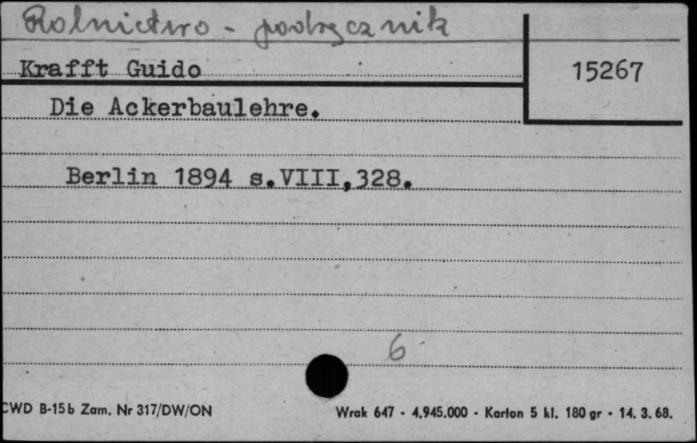 Rolnictwo - podręcznik
Krafft Guido
15267
Die Ackerbaulehre.
Berlin 1894 s.VIII,328.
6
CWD B-15b Zam. Nr 317/DW/ON
Wrak 647 - 4.945.000 - Karton 5 kl. 180 gr - 14. 3. 68.